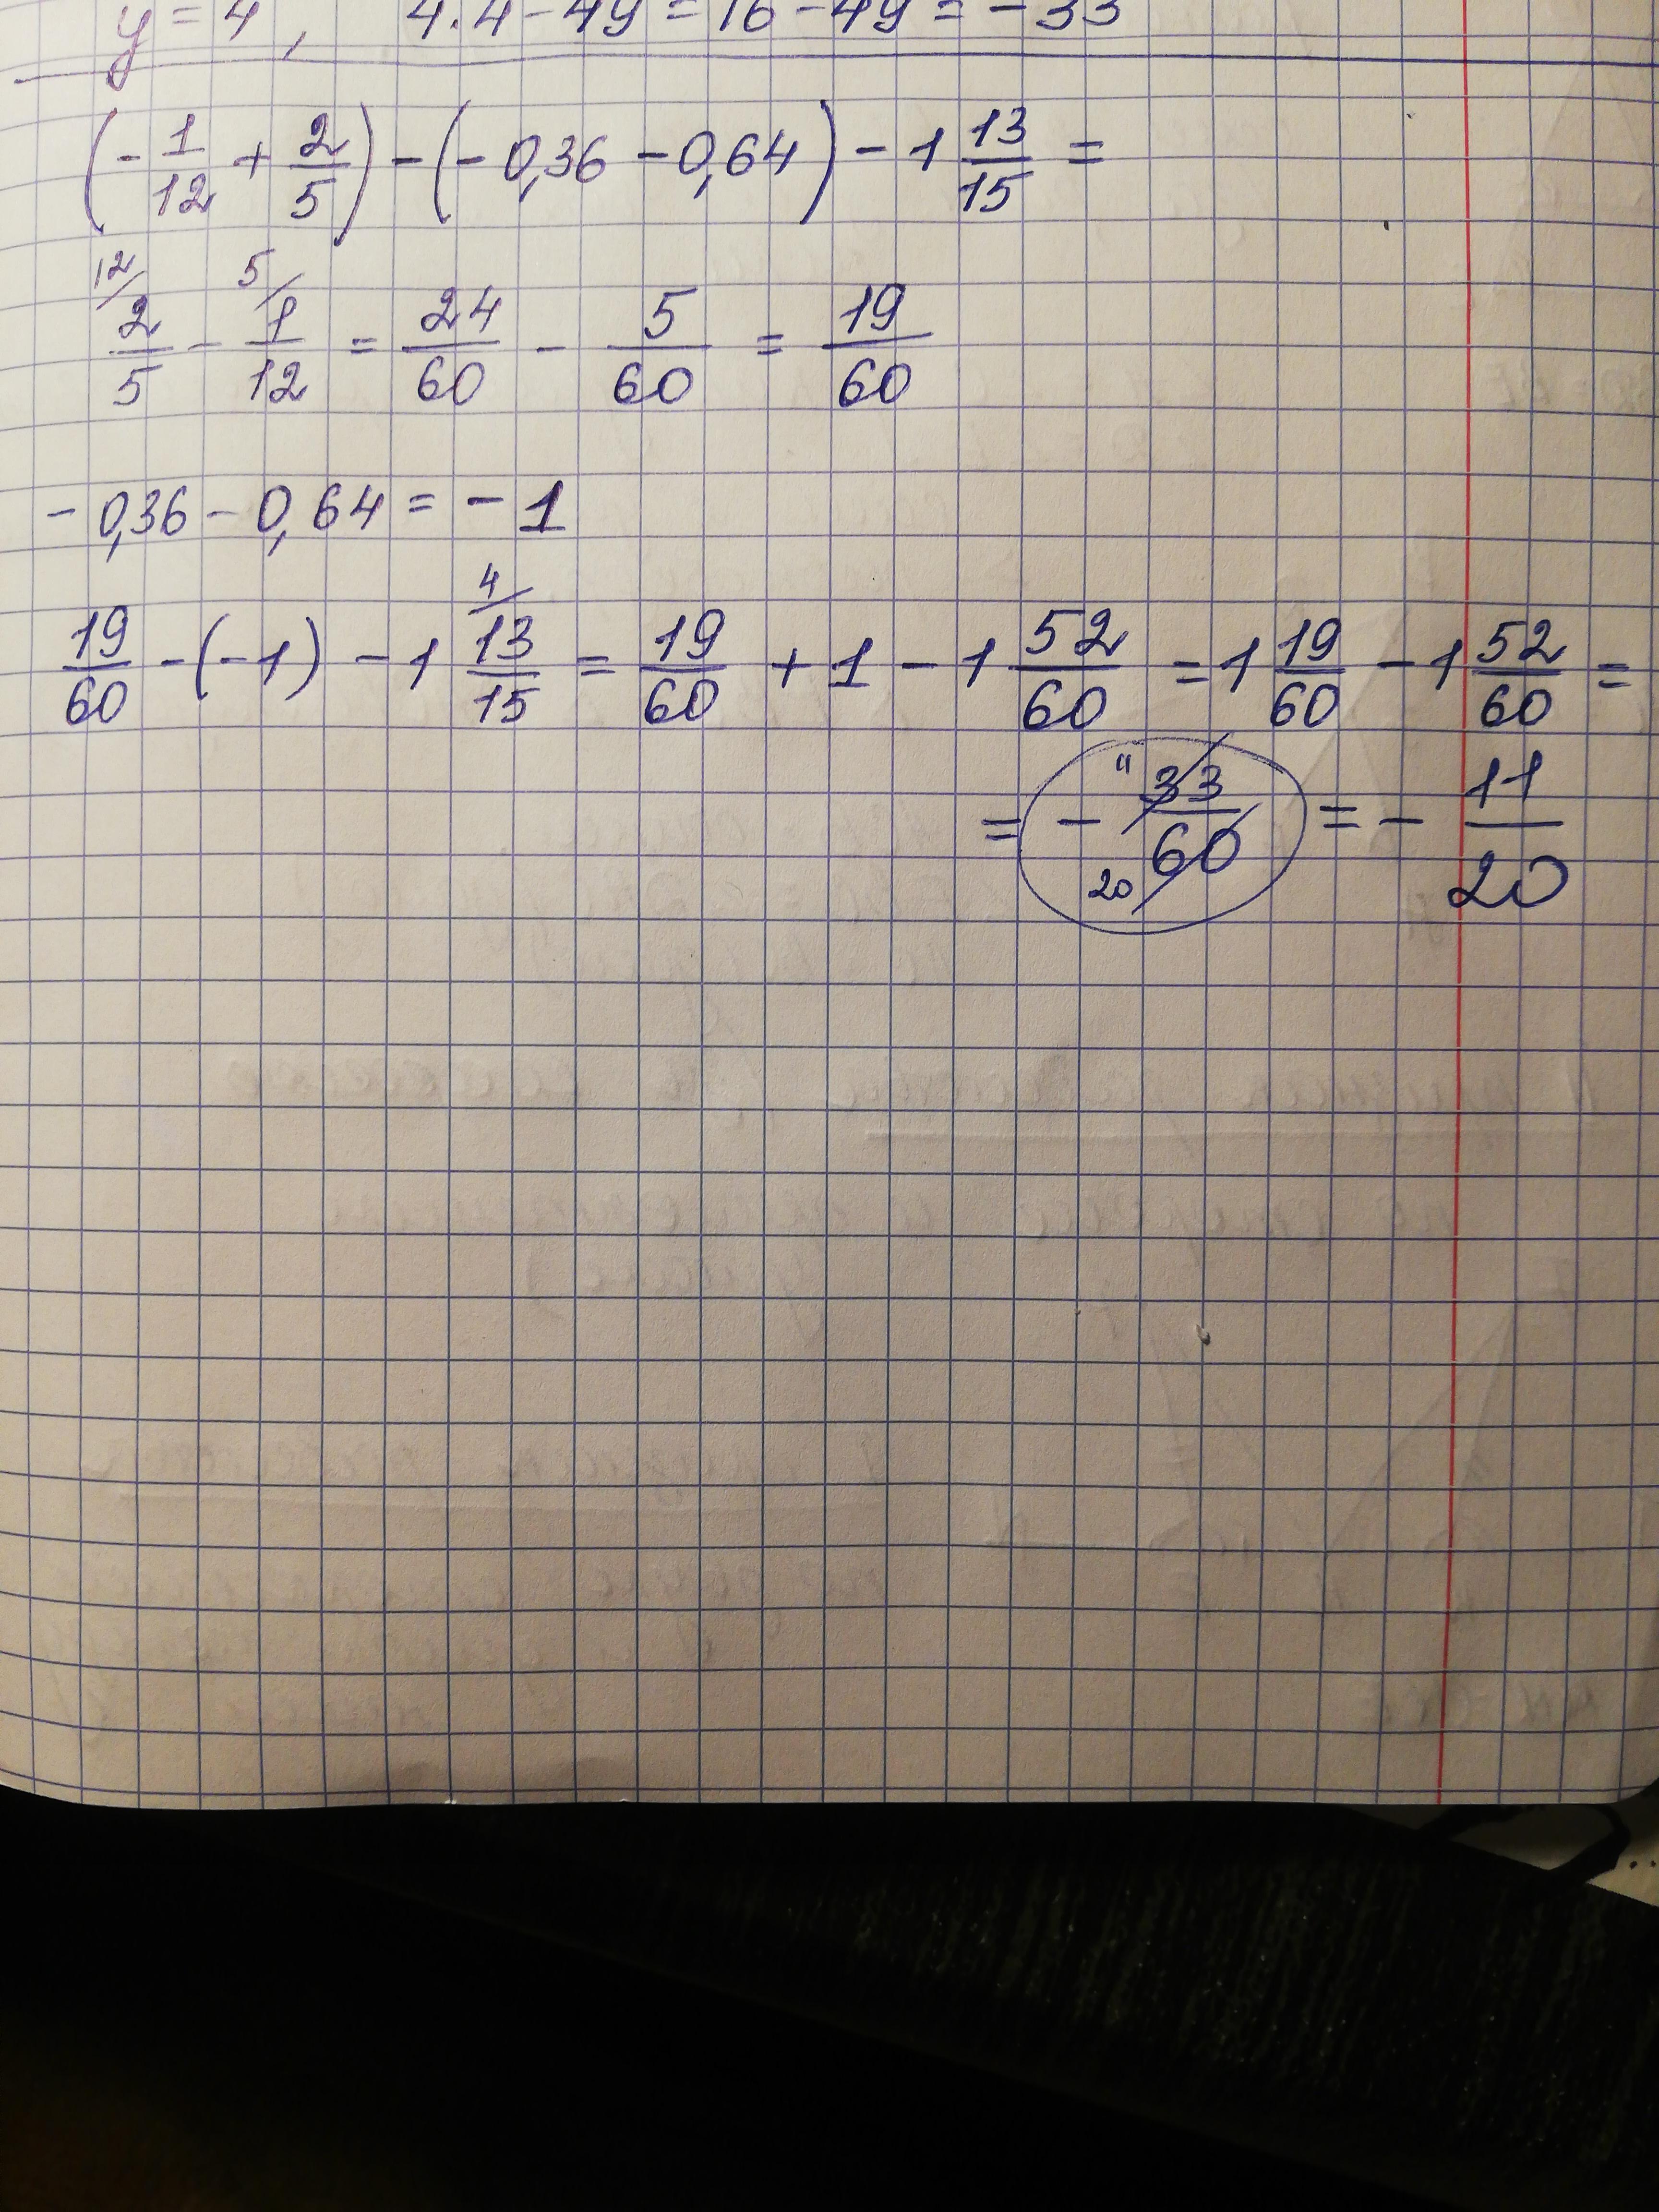 y = 4, 4·4 - 49 = 16 - 49 = -33
(-1/12 + 2/5) - (-0,36 - 0,64) - 1 13/15 =
12/ 2/5 - 5/ 1/12 = 24/60 - 5/60 = 19/60
-0,36 - 0,64 = -1
19/60 - (-1) - 1 4/ 13/15 = 19/60 + 1 - 1 52/60 = 1 19/60 - 1 52/60 =
= - 11 33/60 20 = - 11/20